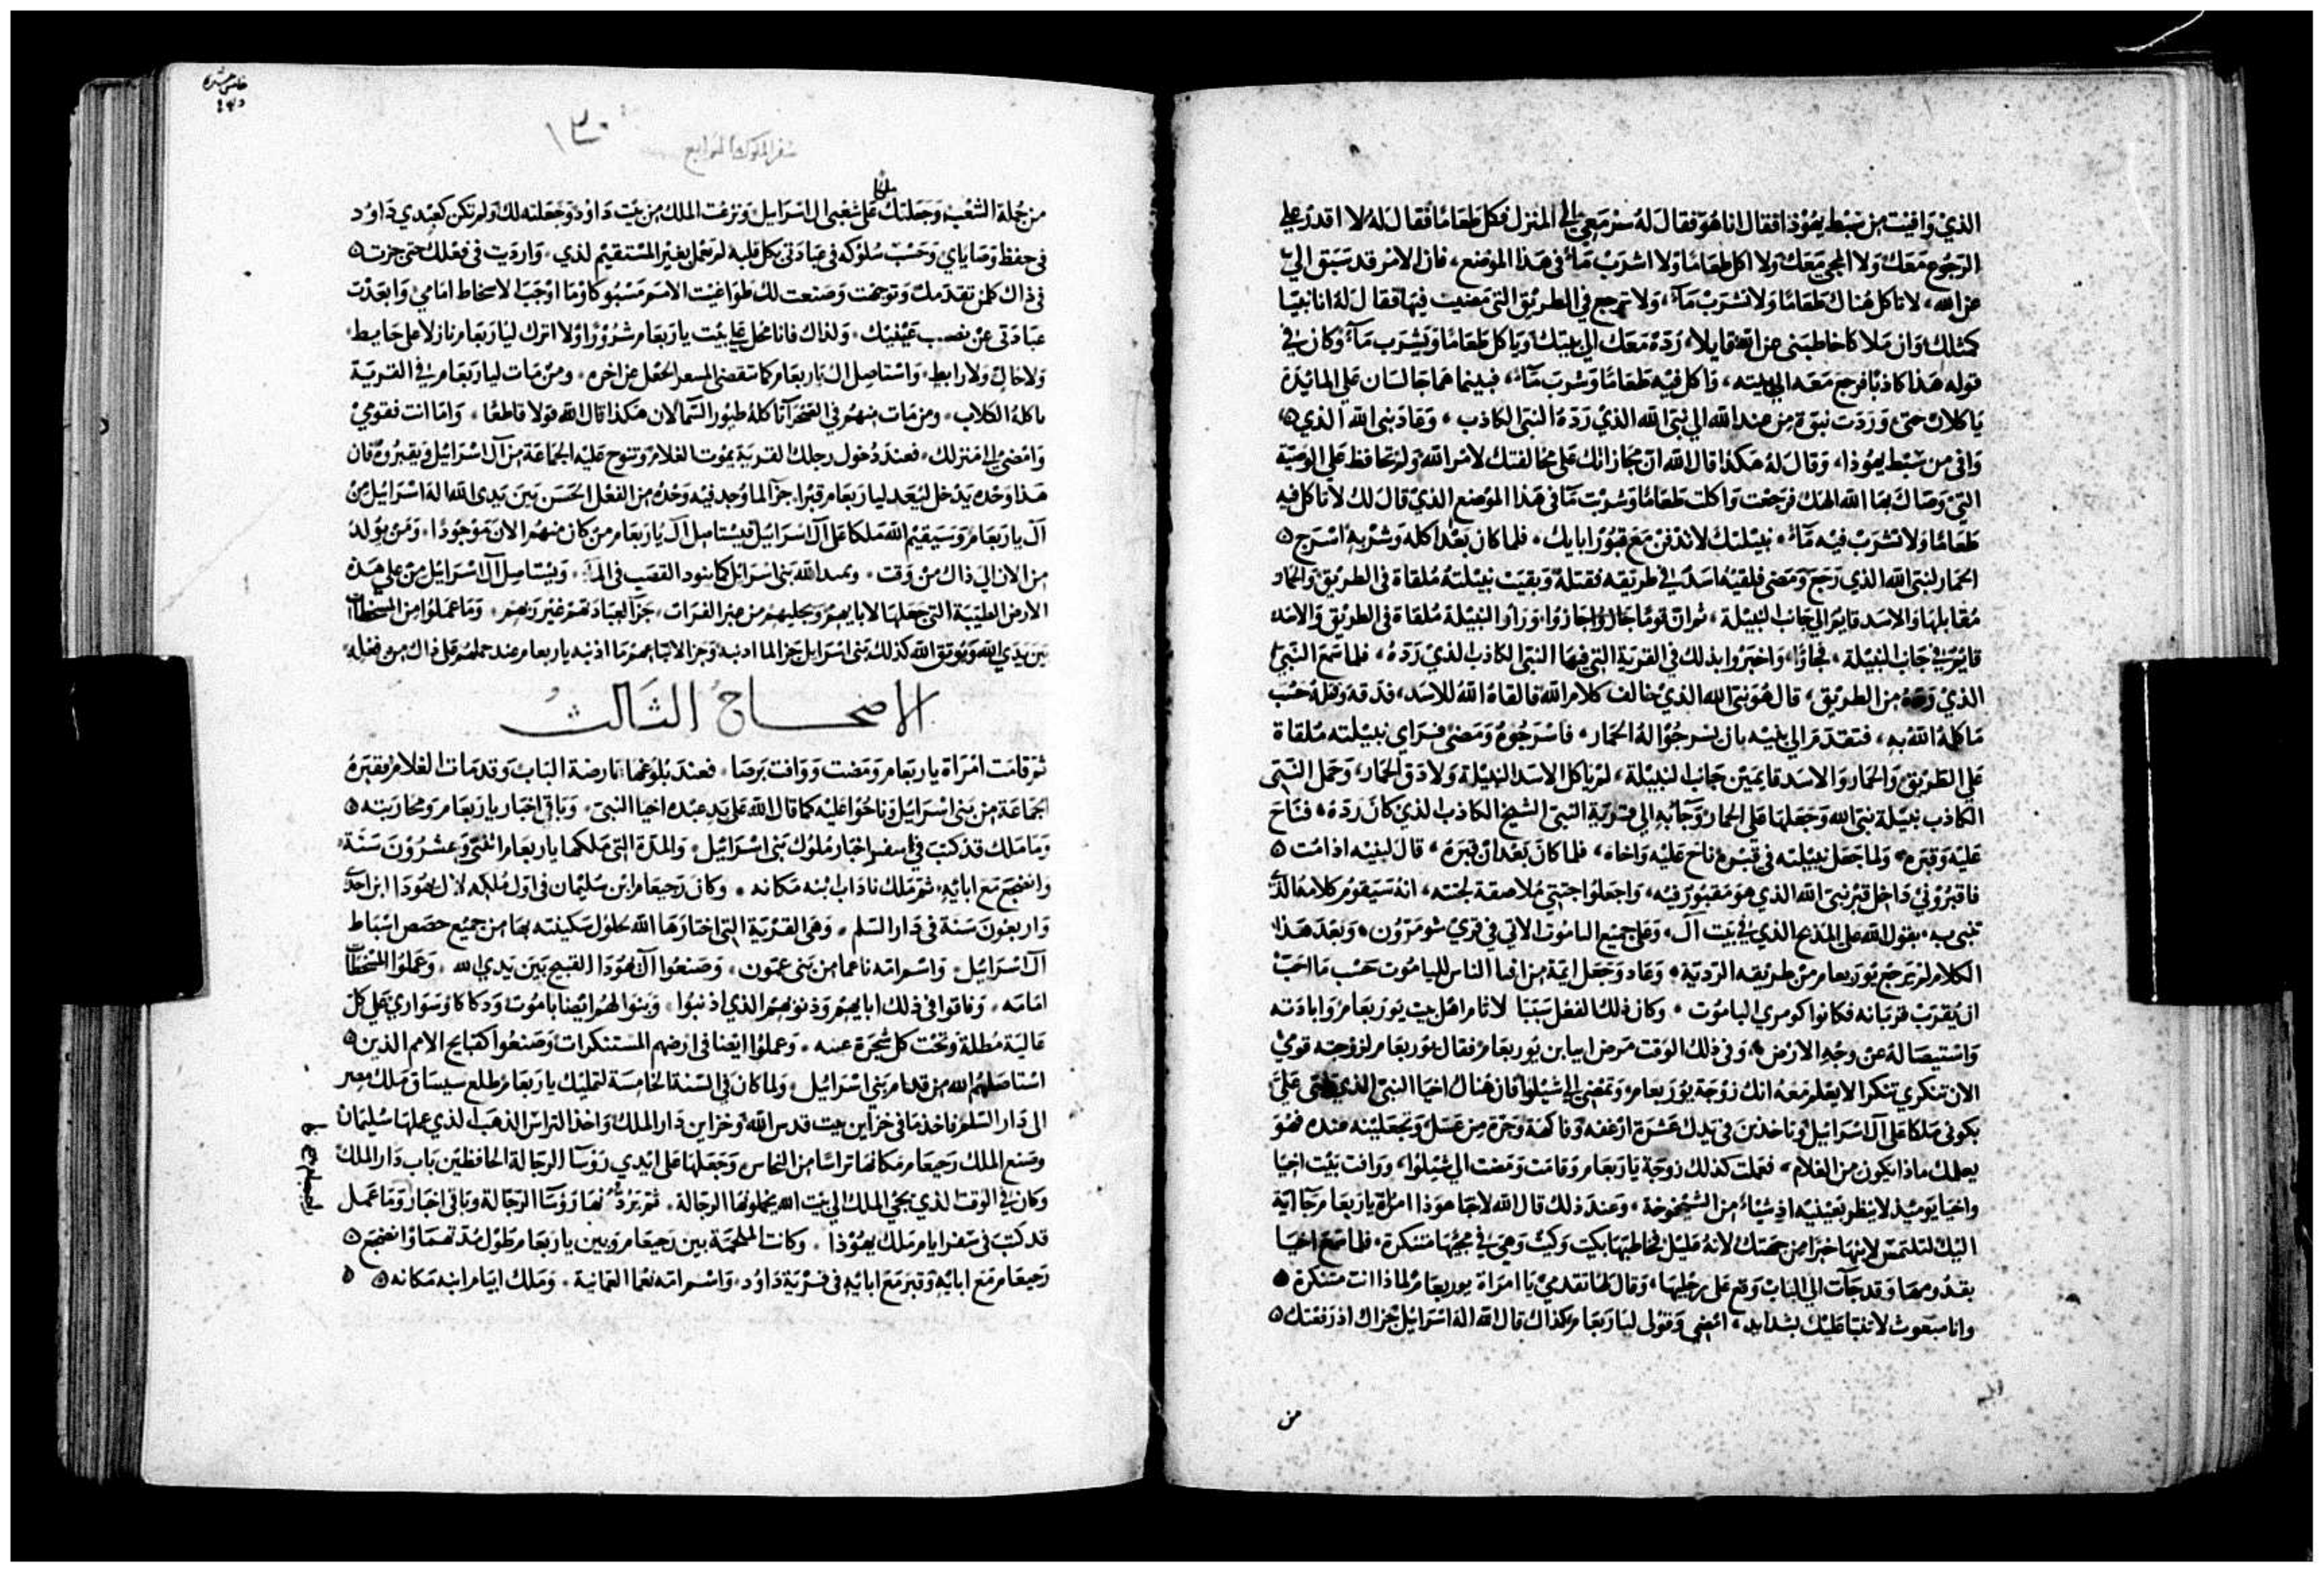 الذي وافيت من سبط يهوذا فقال انا هو فقال له سر معي الى المنزل فكل طعامًا فقال له لا اقدر على
الرجوع معك ولا المجي معك ولا اكل طعامًا ولا اشرب مآء في هذا الموضع، فان الامر قد سبق الي
من الله، لا تاكل هناك طعامًا ولا تشرب مآء، ولا ترجع في الطريق التي مضيت فيها فقال له انا نبيا
كمثلك وان ملاكا خاطبني من الله قايلا، رده معك الى بيتك وياكل طعامًا ويشرب مآء وكان في
قوله هذا كاذبًا فرجع معه الى بيته، واكل فيه طعامًا وشرب مآء، فبينما هما جالسان على المايدة
ياكلان حتى وردت نبوة من عند الله الى نبي الله الذي رده النبي الكاذب، وعاد نبي الله الذي
وافى من سبط يهوذا، وقال له هكذا قال الله ان مجازاتك على مخالفتك لامر الله ولم تحافظ على الوصية
التي وصاك بها الله الهك فرجعت واكلت طعامًا وشربت مآ في هذا الموضع الذي قال لك لا تاكل فيه
طعامًا ولا تشرب فيه مآء، نبيلتك لا تدفن مع قبور ابايك، فلما كان بعد اكله وشربه اسرج
الحمار لنبي الله الذي رجع ومضى فلقيه اسد في طريقه فقتله وبقيت نبيلته ملقاة في الطريق والحمار
مقابلها والاسد قايم الى جانب النبيلة، ثم ان قومًا جازوا وراوا النبيلة ملقاة في الطريق والاسد
قايم في جانب النبيلة، فجاوا، واخبروا بذلك في القرية التي فيها النبي الكاذب الذي رده، فلما سمع النبي
الذي رده من الطريق، قال هو نبي الله الذي خالف كلام الله فالقاه الله للاسد، فدقه وقتله حسب
ما كلمه الله به، فتقدم الى بنيه بان يسرجوا له الحمار، فاسرجوه ومضى فراى نبيلته ملقاة
على الطريق والحمار والاسد قايمين جانب النبيلة، لم ياكل الاسد النبيلة ولا دق الحمار، وحمل النبي
الكاذب نبيلة نبي الله وجعلها على الحمار وجآ به الى قرية النبي الشيخ الكاذب الذي كان رده، فناح
عليه وقبره، ولما جعل نبيلته في قبره ناح عليه واخاه، فلما كان بعد ان قبره، قال لبنيه اذا مت
فاقبروني داخل قبر نبي الله الذي هو مقبور فيه، واجعلوا جثتي ملاصقة لجثته، انه سيقوم كلامه الذي
تنبى به، بقول الله على المذبح الذي في بيت آل، وعلى جميع الباموت الاتي في قرى شومرون، وبعد هذا
الكلام لم يرجع يوربعام من طريقه الردية، وعاد وجعل ايمة من افنا الناس للباموت حسب ما احب
ان يقرب قربانه فكانوا كومري الباموت، وكان ذلك الفعل سببًا لاثام اهل بيت يوربعام وابادته
واستيصاله عن وجه الارض، وفي ذلك الوقت مرض ابيا بن يوربعام فقال يوربعام لزوجته قومي
الان تنكري تنكرا لا يعلم معه انك زوجة يوربعام، وتمضي الى شيلوا فان هناك احيا النبي الذي علي
بكوني ملكا على آل اسرائيل وتاخذين في يدك عشرة ارغفه وفاكهة وجرة من عسل وتجعلينه عنده فهو
يعلمك ماذا يكون من الغلام، فعملت كذلك زوجة ياربعام وقامت ومضت الى شيلوا، ووافت بيت احيا
واحيا يوميذ لا ينظر بعينيه من الشيخوخة، وعند ذلك قال الله لاحيا هوذا امراة ياربعام جاية
اليك لتلتمس لابنها خبرا من جهتك لانه عليل فخاطبها بكيت وكيت وهي في مجيها متنكرة، فلما سمع احيا
بقدومها وقد جآت الى الباب وقع على رجليها، وقال لها تقدمي يا امراة يوربعام لماذا انت متنكرة
وانا مبعوث لاتنبا عليك بشدايد، امضي وقولي لياربعام كذاك قال الله اله اسرائيل جزاك اذ رفعتك
من
١٣٠
سفر الملوك الرابع
من جملة الشعب وجعلتك ملكا على شعبي ال اسرايل ونزعت الملك من بيت داود وجعلته لك ولم تكن كعبدي داود
في حفظ وصاياي وحسن سلوكه في عبادتي بكل قلبه لم يعمل بغير المستقيم لدي، واردت في فعلك حتى جزت
في ذاك كلمن تقدمك وتوجهت وصنعت لك طواغيت الاسم مسبوكا وما اوجب الاسخاط امامي وابعدت
عبادتي عن نصب عينيك، ولذاك فانا محل على بيت ياربعام شرورًا ولا اترك لياربعام نازلا على حايط
ولا خالٍ ولا رابط، واستاصل ال ياربعام كما تنقضي الحقل عن اخره، ومن مات لياربعام في القرية
تاكله الكلاب، ومن مات منهم في الصحرآ تاكله طيور السمآ لان هكذا قال الله قولا قاطعًا، واما انت فقومي
وامضي الى منزلك، فعند دخول رجلك القرية يموت الغلام وتنوح عليه الجماعة من آل اسرائيل ويقبروه فان
هذا وحده يدخل ليعد لياربعام قبرا، جزآ لما وجد فيه وحده من الفعل الحسن بين يدي الله اله اسرائيل من
آل ياربعام وسيقيم الله ملكا على آل اسرائيل فيستاصل آل ياربعام من كان منهم الان موجودًا، ومن يولد
من الان الى ذاك من وقت، الله بني اسرائل كما ينود القصب في المآ، ويستاصل آل اسرائيل من على هذه
الارض الطيبة التي جعلها لابايهم ويجليهم من عبر الفرات، جزآ لعبادتهم غير ربهم، وما عملوا من المسخطات
بين يدي الله ويوثق الله كذلك بني اسرائل جزآ لما اذنبه ياربعام عند حملهم على ذاك من فعله
الاصحاح الثالث
ثم قامت امراة ياربعام ومضت ووافت برصا، فعند بلوغها عارضة الباب وقد مات الغلام فقبره
الجماعة من بني اسرائيل وناحوا عليه كما قال الله على يد عبده احيا النبي، وباقي اخبار ياربعام ومحاربته
وما ملك قد كتب في اسفر اخبار ملوك بني اسرائيل، والمدة التي ملكها ياربعام اثنتي وعشرون سنة
وانضجع مع ابائه، ثم ملك ناداب ابنه مكانه، وكان رحبعام ابن سليمان في اول ملكه لال يهودا ابن احدى
واربعون سنة في دار السلم، وهي القرية التي اختارها الله لحلول سكينته بها من جميع حصص اسباط
آل اسرائيل، واسم امه ناعما من بني عمون، وصنعوا آل يهودا القبيح بين يدي الله، وعملوا المسخطات
امامه، وفاقوا في ذلك ابايهم وذنوبهم الذي اذنبوا، وبنوا لهم ايضا باموت ودكاكا وسواري على كل
عالية مطلة وتحت كل شجرة، وعملوا ايضا في ارضهم المستنكرات وصنعوا كقبايح الامم الذين
استاصلهم الله من قدام بني اسرائيل، ولما كان في السنة الخامسة لتمليك ياربعام طلع سيساق ملك مصر
الى دار السلم فاخذ ما في خزاين بيت قدس الله وخزاين دار الملك واخذ التراس الذهب الذي عملها سليمان
وصنع الملك رحبعام مكانها تراسا من النحاس وجعلها على ايدي روسآ الرجالة الحافظين باب دار الملك
وكان في الوقت الذي يجي الملك الى بيت الله يحملونها الرجالة، ثم يردونها روسآ الرجالة وباقي اخبار وما عمل
قد كتب في سفر ايام ملك يهوذا، وكانت الملحمة بين رحبعام وبين ياربعام طول مدتهما وانضجع
رحبعام مع ابائه وقبر مع ابائه في قرية داود، واسم امه نعما العمانية، وملك ابيام ابنه مكانه